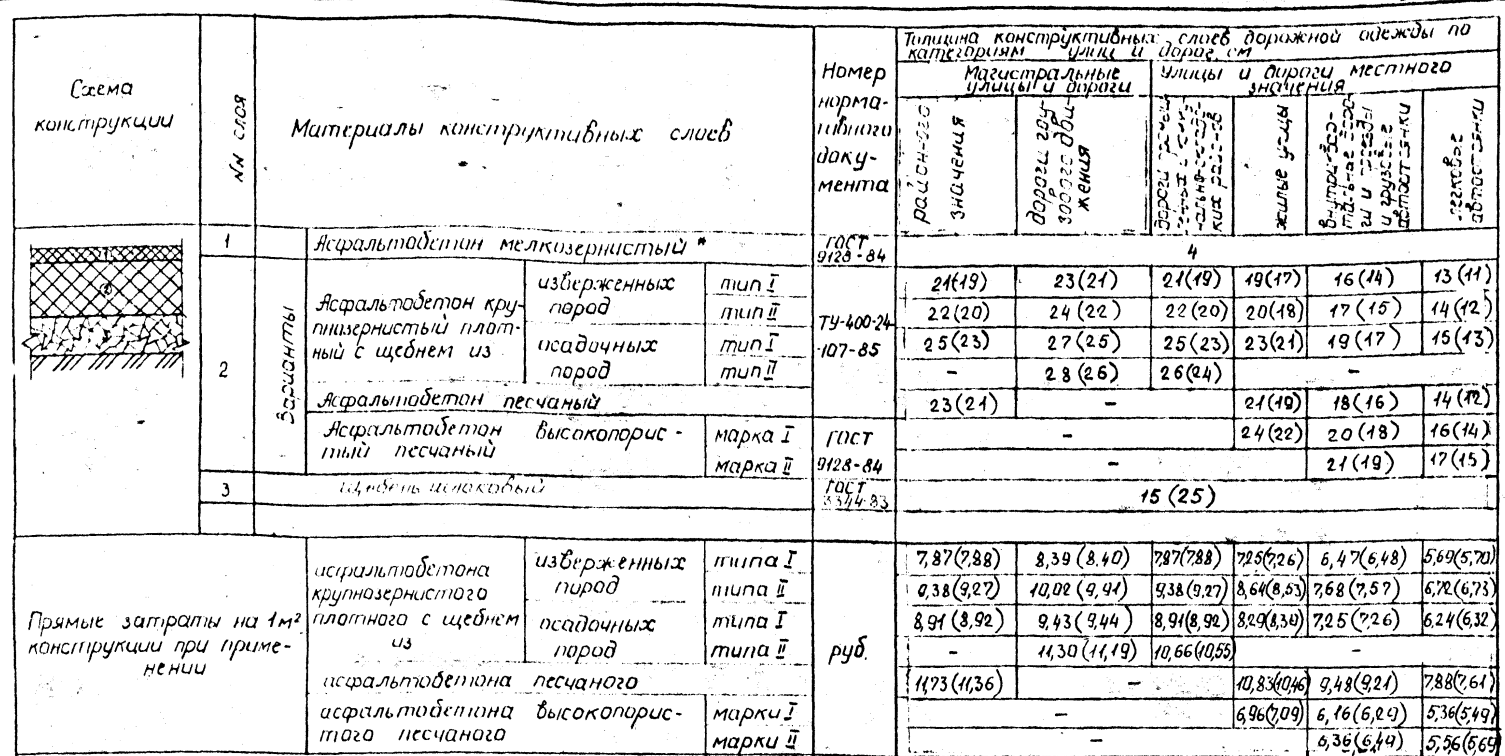 Схема конструкции
NN слоя
Материалы конструктивных слоев
Номер нормативного документа
Толщина конструктивных слоев дорожной одежды по
категориям улиц и дорог, см
Магистральные улицы и дороги
Улицы и дороги местного значения
район-ого значения
дороги грузового движения
жилые улицы
легковые автостоянки
1 Асфальтобетон мелкозернистый * ГОСТ 9128-84 4
2 Варианты
Асфальтобетон крупнозернистый плотный с щебнем из
ТУ-400-24-107-85
изверженных пород тип I 21(19) 23(21) 21(19) 19(17) 16(14) 13(11)
тип II 22(20) 24(22) 22(20) 20(18) 17(15) 14(12)
осадочных пород тип I 25(23) 27(25) 25(23) 23(21) 19(17) 15(13)
тип II - 28(26) 26(24) -
Асфальтобетон песчаный 23(21) - 21(19) 18(16) 14(12)
Асфальтобетон высокопорис-
тый песчаный
ГОСТ 9128-84
марка I - 24(22) 20(18) 16(14)
марка II - 21(19) 17(15)
3 Щебень шлаковый ГОСТ 3344-83 15(25)
Прямые затраты на 1м²
конструкции при приме-
нении
руб.
асфальтобетона
крупнозернистого
плотного с щебнем
из
изверженных пород типа I 7,87(7,88) 8,39(8,40) 7,87(7,88) 7,25(7,26) 6,47(6,48) 5,69(5,70)
типа II 9,38(9,27) 10,02(9,91) 9,38(9,27) 8,64(8,53) 7,68(7,57) 6,72(6,73)
осадочных пород типа I 8,91(8,92) 9,43(9,44) 8,91(8,92) 8,29(8,30) 7,25(7,26) 6,24(6,32)
типа II - 11,30(11,19) 10,66(10,55) -
асфальтобетона песчаного 11,73(11,36) - 10,83(10,46) 9,48(9,21) 7,88(7,61)
асфальтобетона высокопорис-
того песчаного
марки I - 6,96(7,09) 6,16(6,29) 5,36(5,49)
марки II - 6,36(6,49) 5,56(5,69)